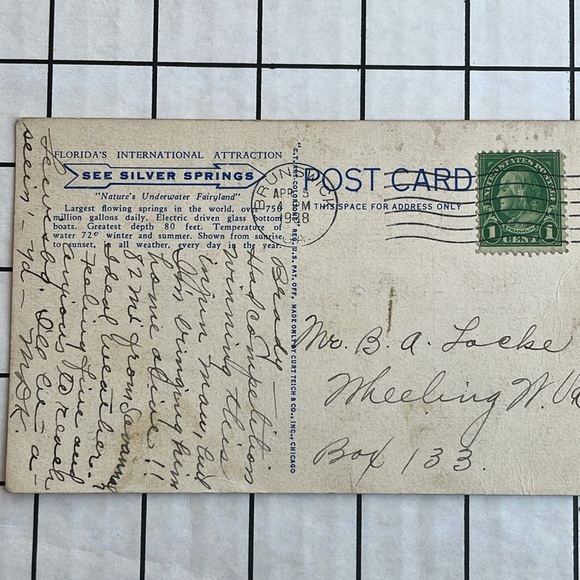 FLORIDA'S INTERNATIONAL ATTRACTION
SEE SILVER SPRINGS
"Nature's Underwater Fairyland"
Largest flowing springs in the world, over 750
million gallons daily. Electric driven glass bottom
boats. Greatest depth 80 feet. Temperature of
water 72° winter and summer. Shown from sunrise
to sunset, all weather, every day in the year.
"C.T. ART-COLORTONE" REG. U.S. PAT. OFF. MADE ONLY BY CURT TEICH & CO., INC., CHICAGO
POST CARD
THIS SPACE FOR ADDRESS ONLY
BRUNSWICK
APR
1938
UNITED STATES POSTAGE
1 CENT 1
Mr. B. A. Locke
Wheeling W. Va
Box 133.
Brady —
Had competition
winning this
injun man, but
I'm bringing him
home alive!!
82 mi from Savannah
Ideal weather.
Feeling fine and
anxious to reach
See u - a -
seein' - ya -